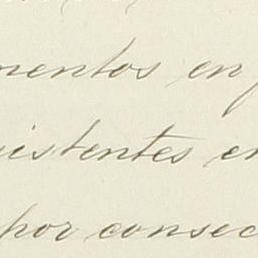 mentos en
istentes en
por consec